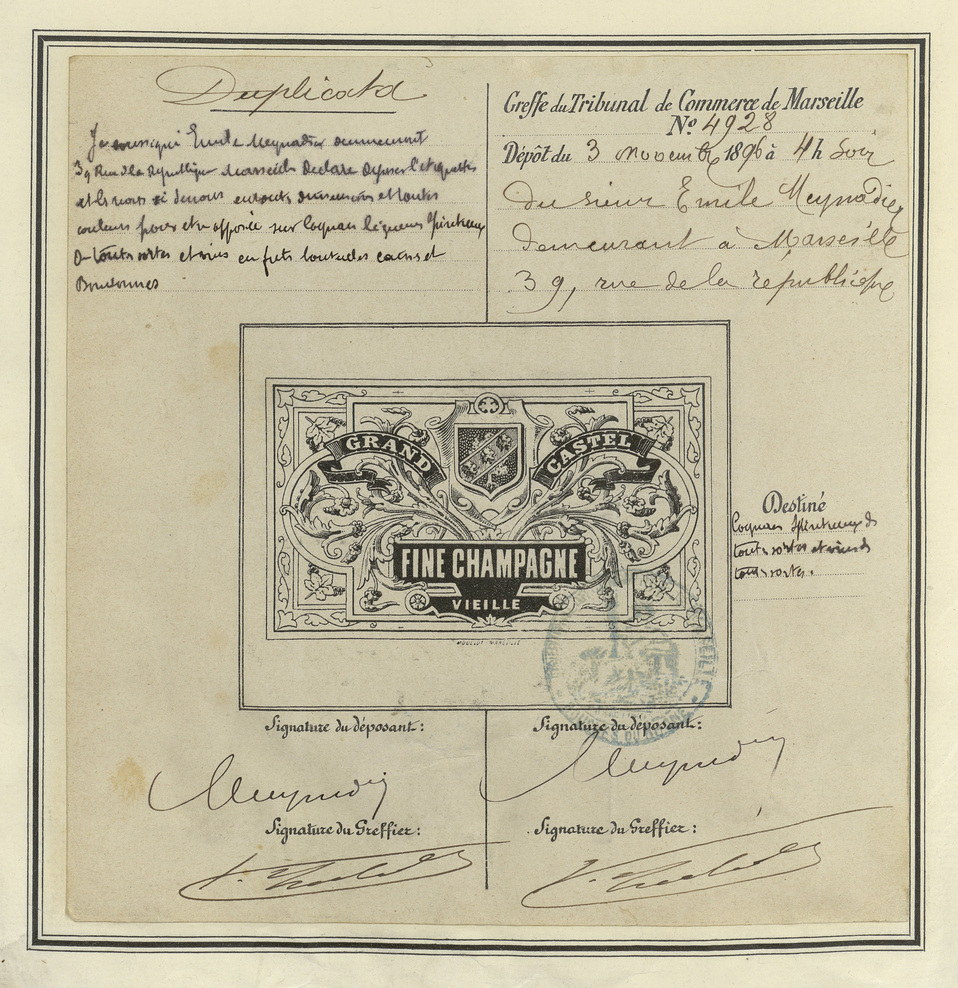 Duplicata
Je soussigné Emile Meynadier demeurant
39 Rue de la République Marseille Declare déposer l'etiquette
et les noms ci dessous en toutes dimensions et toutes
couleurs pour etre apposée sur Cognacs liqueurs Spiritueux
de toutes sortes et vins en futs bouteilles caisses et
Bonbonnes
Greffe du Tribunal de Commerce de Marseille
No 4928
Dépôt du 3 novembre 1896 à 4h Soir
Du sieur Emile Meynadier
demeurant à Marseille
39, rue de la république
GRAND CASTEL
FINE CHAMPAGNE
VIEILLE
MOULLOT MARSEILLE
Destiné
Cognacs Spiritueux de
toutes sortes et vins de
toutes sortes.
Signature du déposant:
Signature du déposant:
Meynadier
Meynadier
Signature du Greffier:
Signature du Greffier: